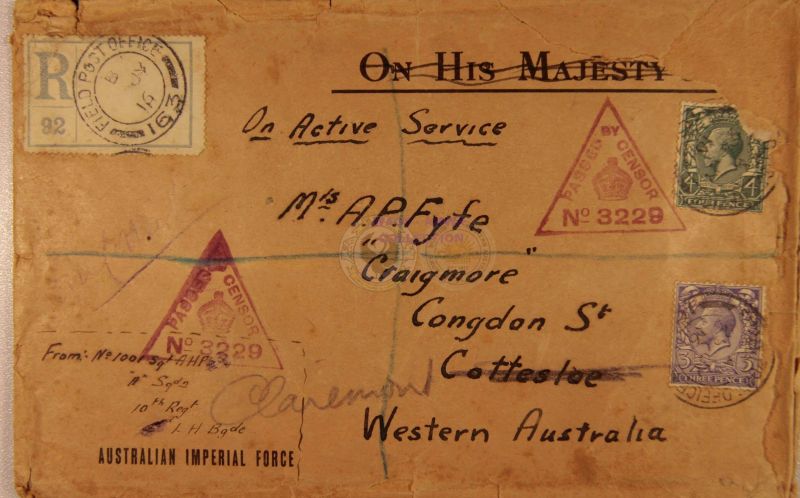 R
92
FIELD POST OFFICE
163
ON HIS MAJESTY
On Active Service
PASSED BY CENSOR
No 3229
4 4
FOURPENCE
Mrs A.P. Fyfe
"Craigmore"
Congdon St
Cottesloe
Claremont
Western Australia
3 3
THREEPENCE
PASSED BY CENSOR
No 3229
From: No 1001 Sgt A H
"A" Sqdn
10th Regt
L H Bgde
AUSTRALIAN IMPERIAL FORCE